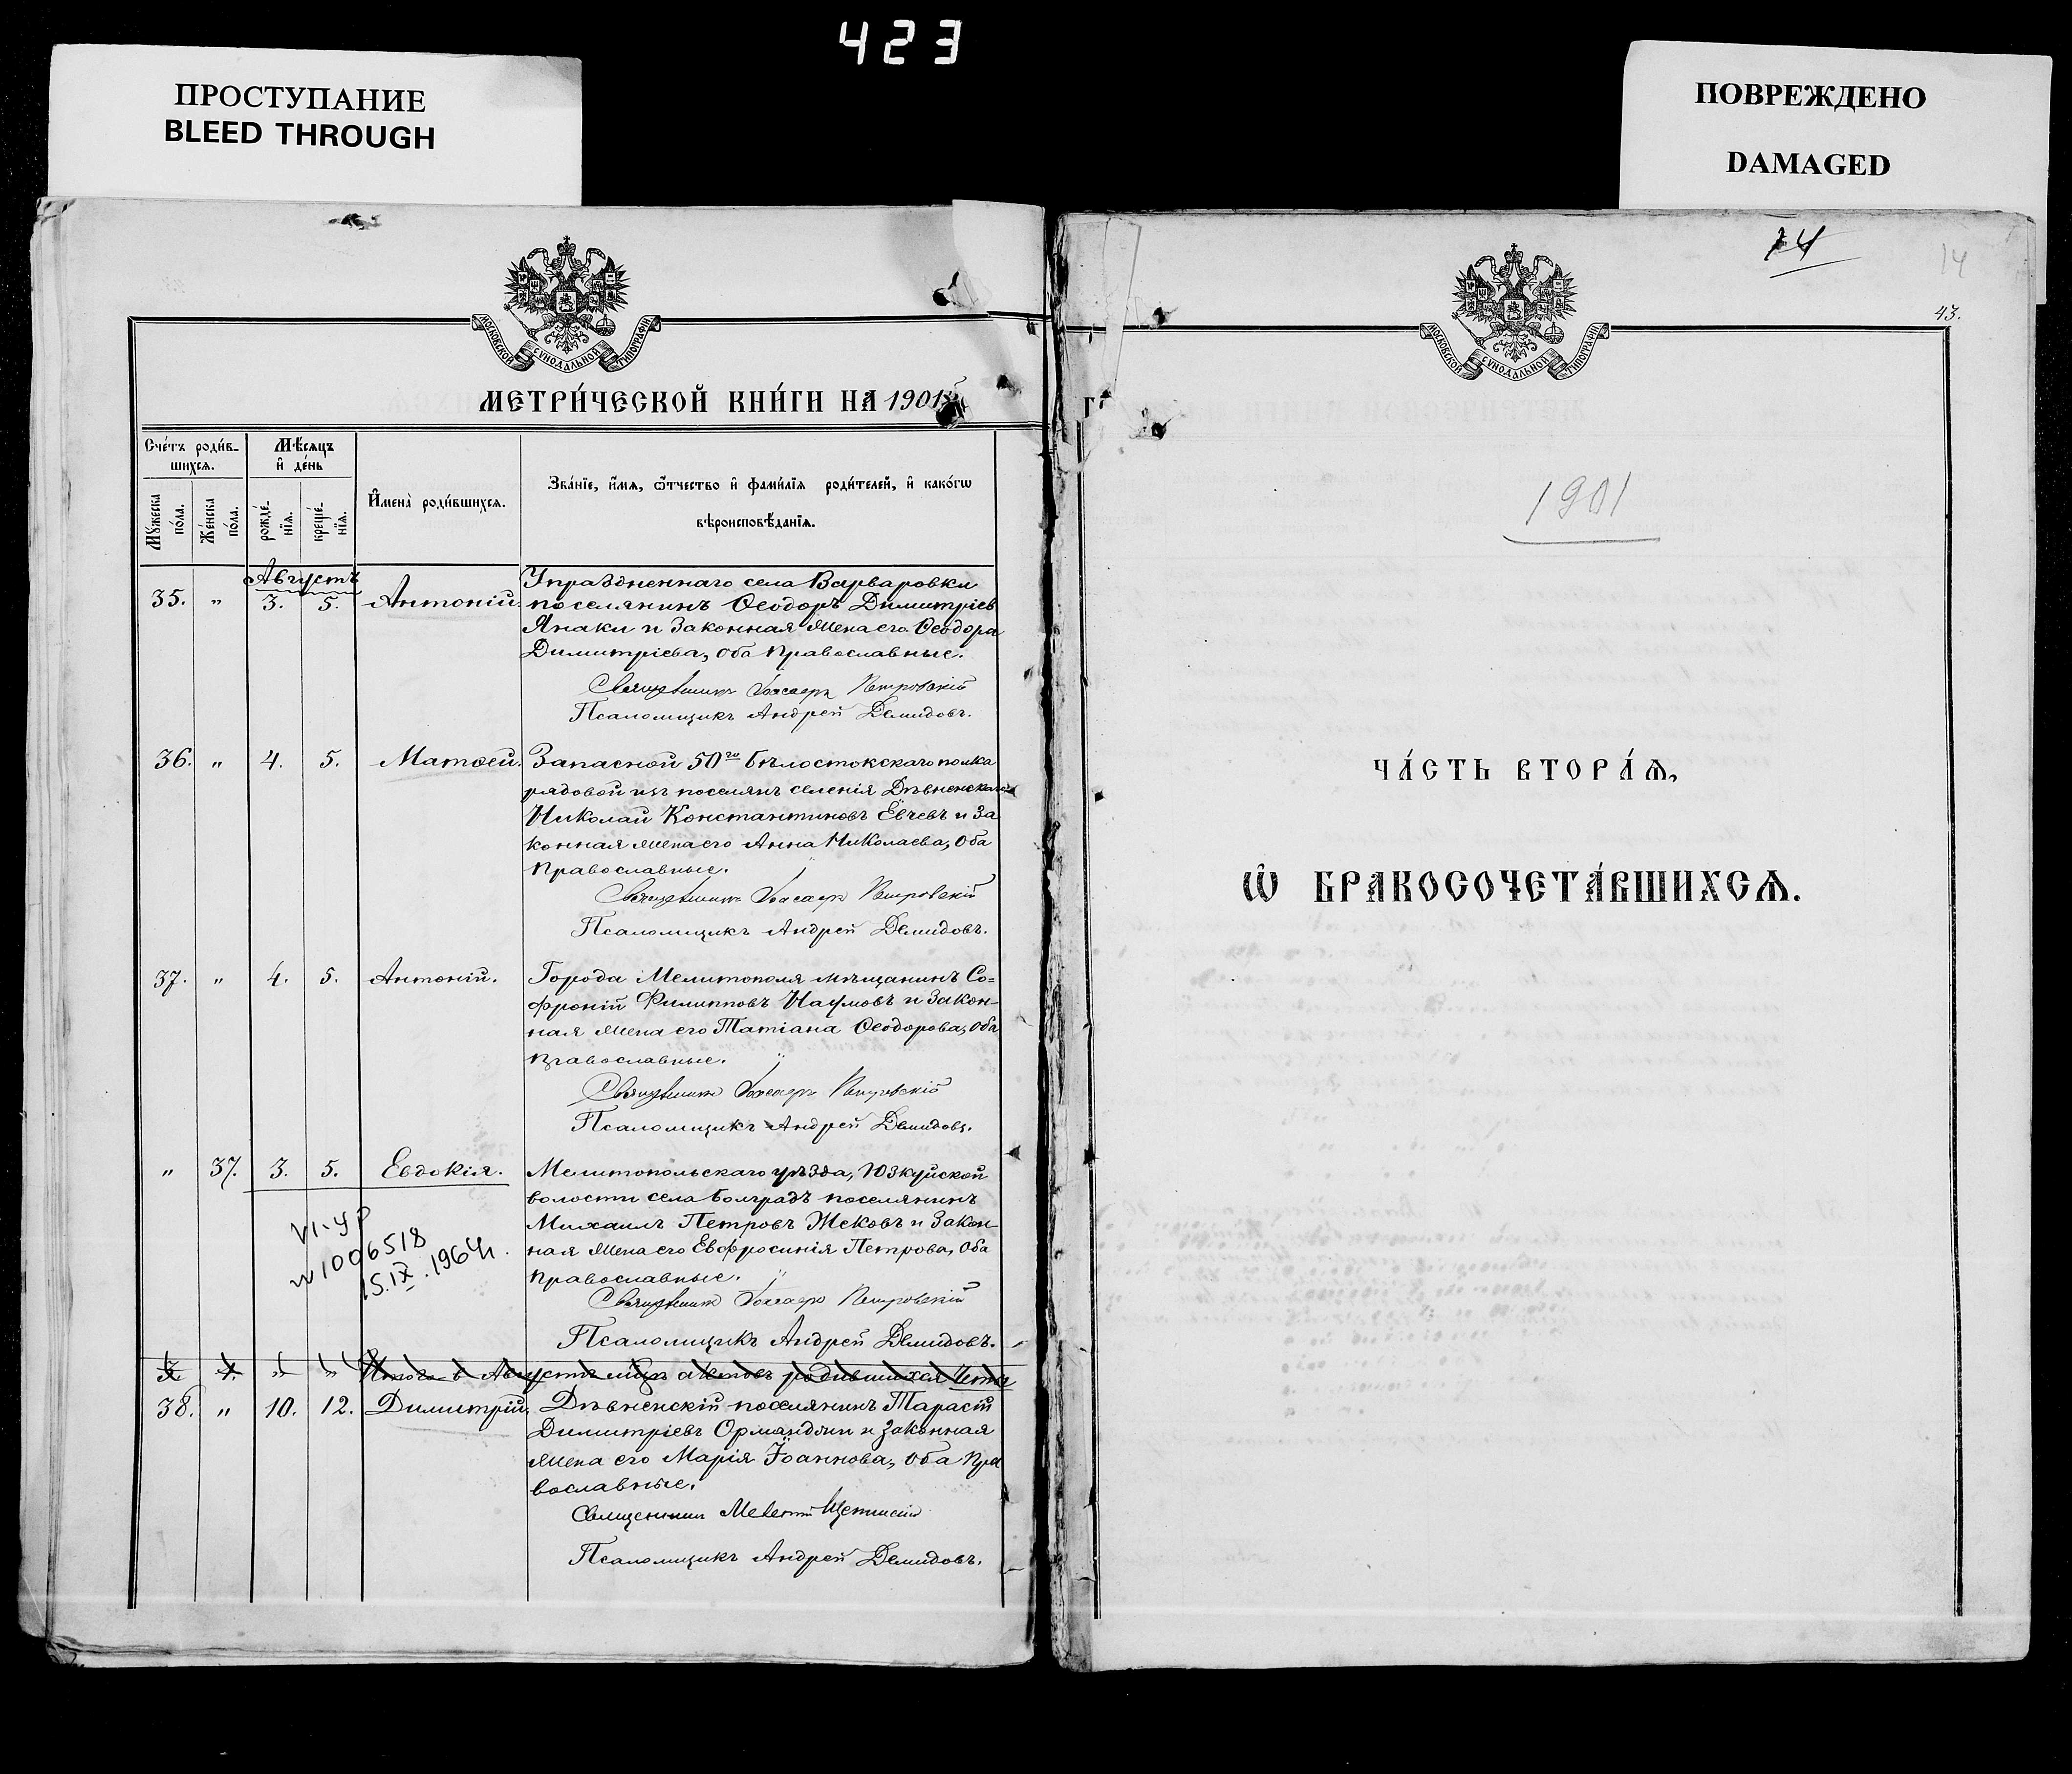 423
ПРОСТУПАНИЕ
BLEED THROUGH
ПОВРЕЖДЕНО
DAMAGED
МОСКОВСКОЙ СѴНОДАЛЬНОЙ ТИПОГРАФІИ
МЕТРИ́ЧЕСКОЙ КНИ́ГИ НА 1901
Сче́тъ роди́в-
шихся.
Мѣ́сяцъ
и҆ де́нь
Мꙋжеска
по́ла.
Же́нска
по́ла.
рожде́-
нїя.
креще́-
нїя.
И҆мена̀ роди́вшихся.
Зва́нїе, и҆́мя, ѻ҆́тчество и҆ фами́лїя роди́телей, и҆ како́гѡ
вѣроисповѣ́данїя.
Августъ
35. " 3. 5. Антоній. Упраздненнаго села Варваровки
поселянинъ Ѳеодоръ Димитріев
Янаки и законная жена его Ѳеодора
Димитріева, оба православные.
Священникъ Петровскій
Псаломщикъ Андрей Демидовъ.
36. " 4. 5. Матѳей. Запасной 50го Бѣлостокскаго полка
рядовой изъ поселянъ селенія Дѣвненскаго
Николай Константиновъ Евчевъ и за
конная жена его Анна Николаева, оба
православные.
Священникъ Петровскій
Псаломщикъ Андрей Демидовъ.
37. " 4. 5. Антоній. Города Мелитополя мѣщанинъ Со=
фроній Филипповъ Наумовъ и закон-
ная жена его Татіана Ѳеодорова, оба
православные.
Священникъ Петровскій
Псаломщикъ Андрей Демидовъ.
" 37. 3. 5. Евдокія. Мелитопольскаго уѣзда, Юзкуйской
волости села Болградъ поселянинъ
Михаилъ Петровъ Жековъ и закон-
ная жена его Евфросинія Петрова, оба
православные.
1006518
15.IX.1964
Священникъ Петровскій
Псаломщикъ Андрей Демидовъ.
38. " 10. 12. Димитрій. Дѣвненскій поселянинъ Тарасій
Димитріевъ Орманджи и законная
жена его Марія Іоаннова, оба пра
вославные.
Священникъ
Псаломщикъ Андрей Демидовъ.
74
14
43.
МОСКОВСКОЙ СѴНОДАЛЬНОЙ ТИПОГРАФІИ
1901
ЧА́СТЬ ВТОРА́Ѧ,
Ѡ҆ БРАКОСОЧЕТА́ВШИХСѦ.